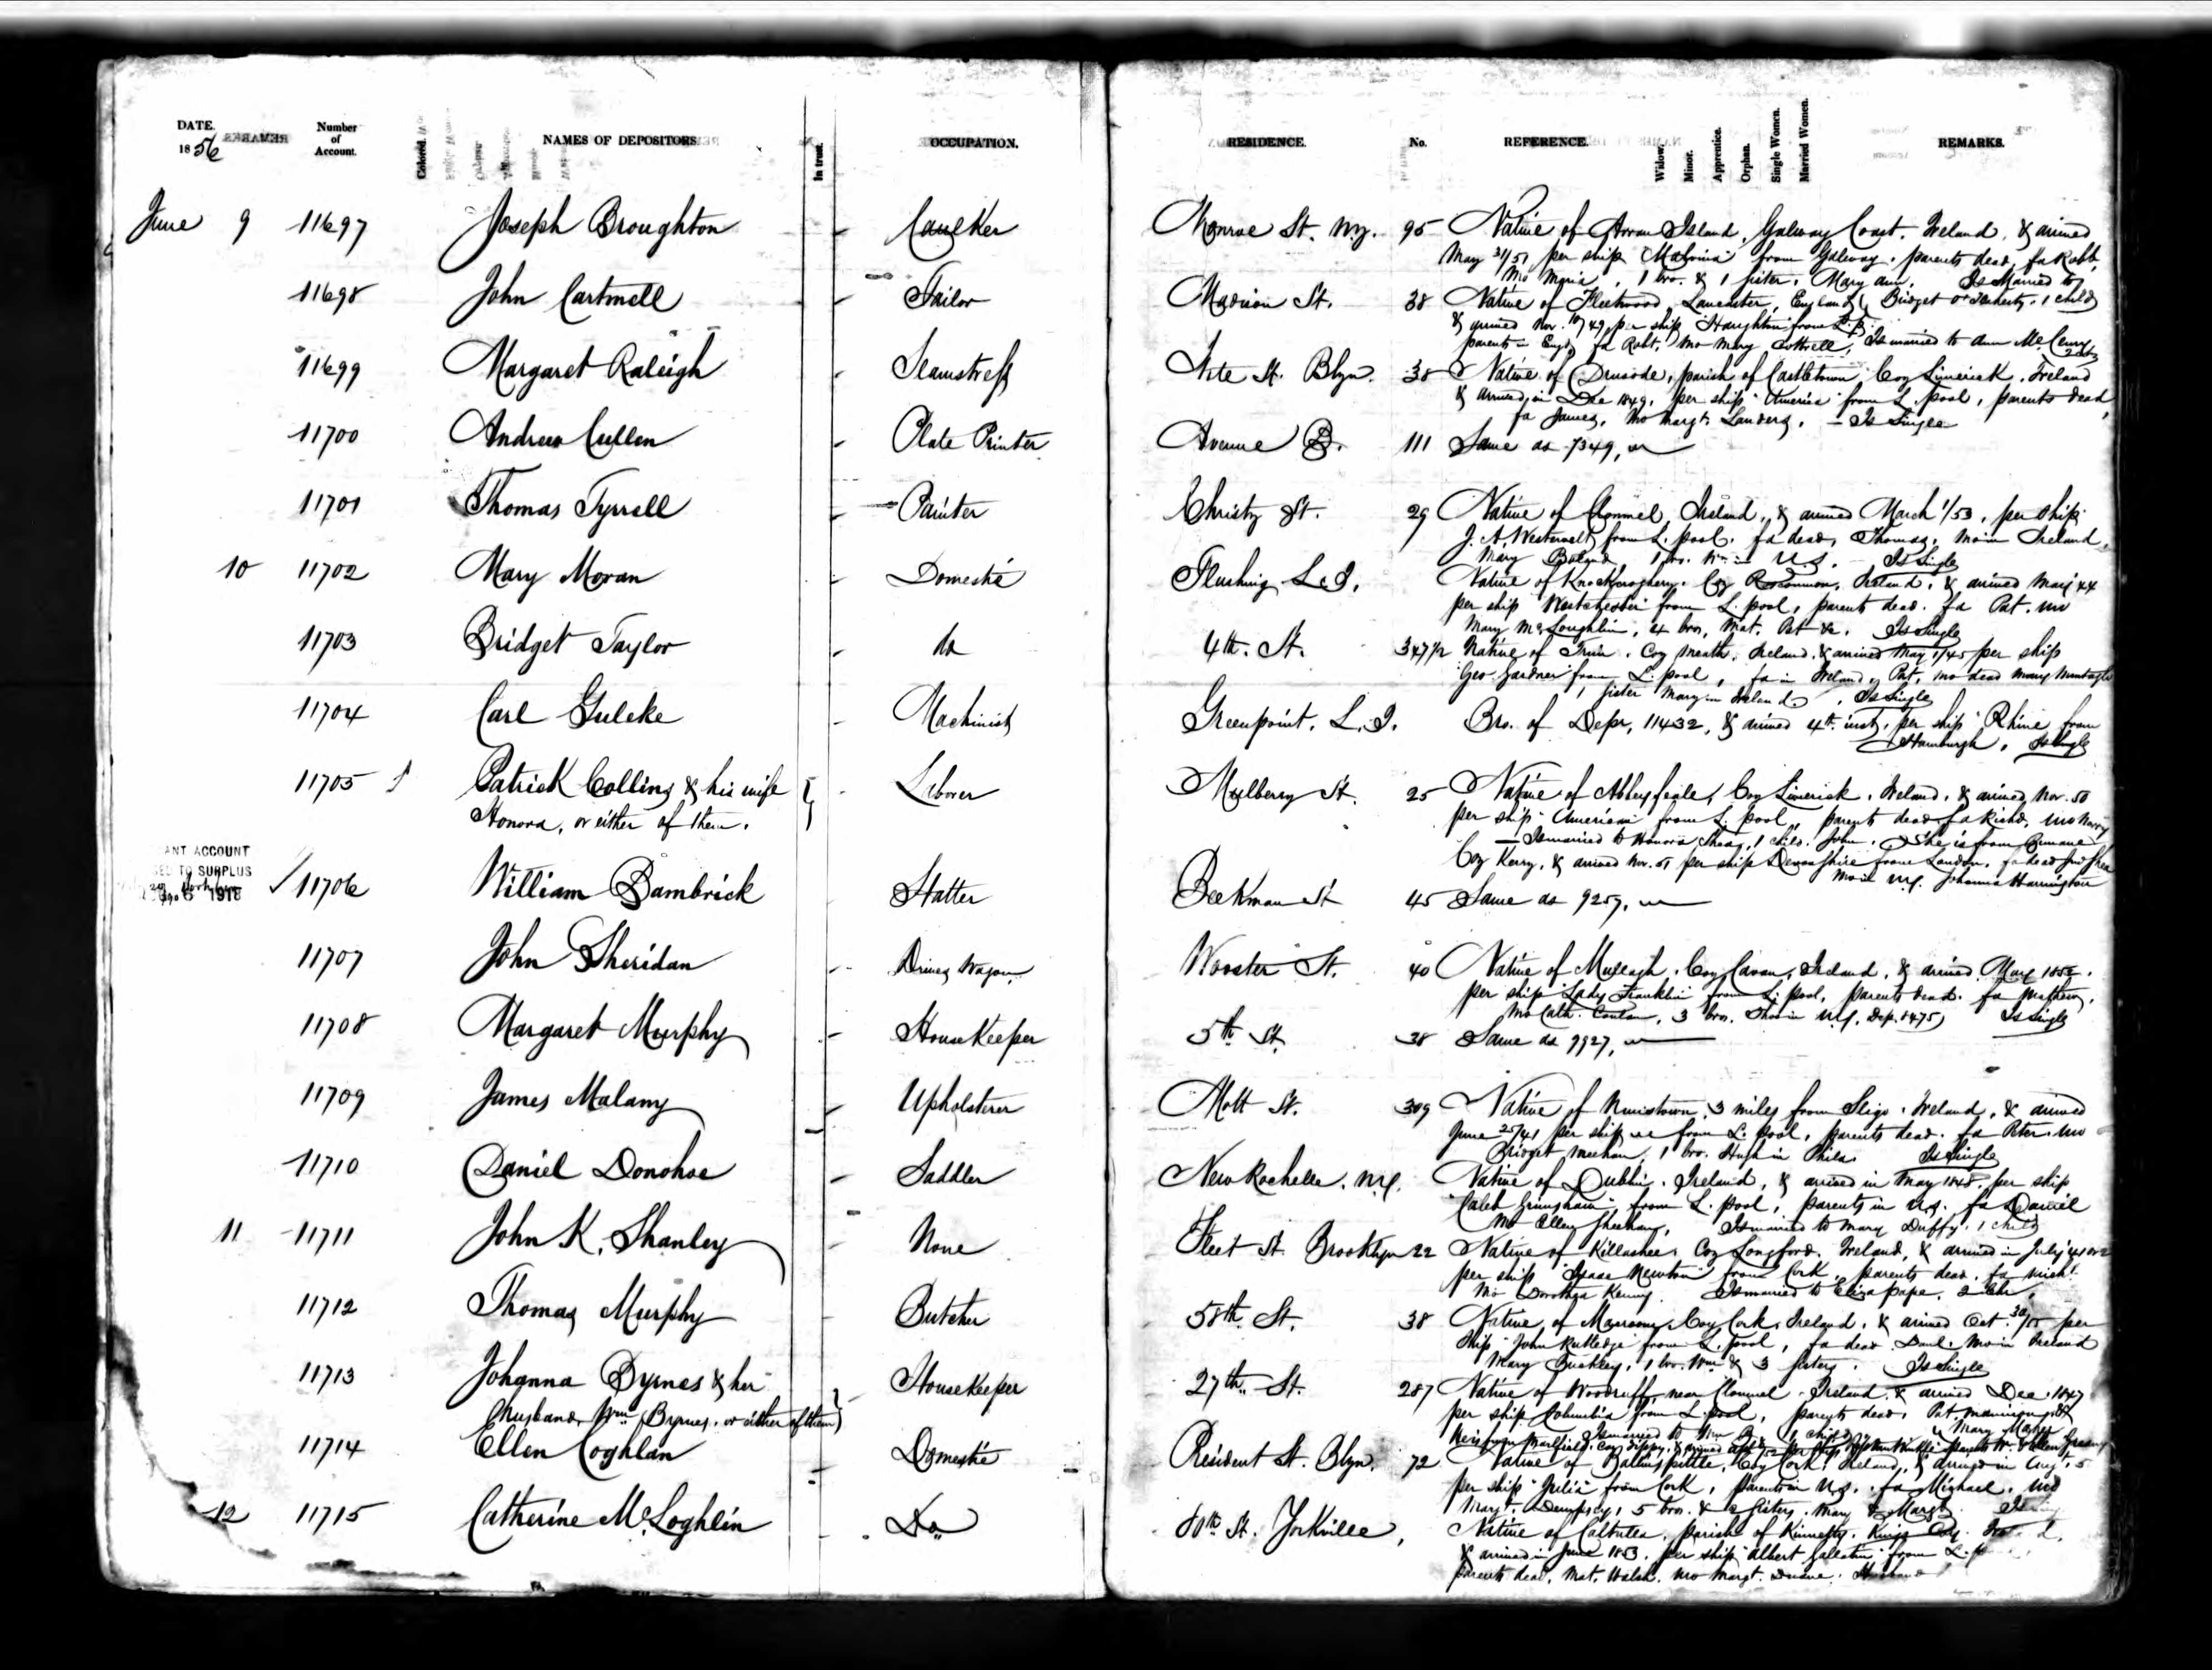 DATE. 1856 Number of Account. Colored. NAMES OF DEPOSITORS In trust. OCCUPATION. RESIDENCE. No. REFERENCE. Widow. Minor. Apprentice. Orphan. Single Women. Married Women. REMARKS.
June 9 11697 Joseph Broughton Caulker Monroe St. N.Y. 95 Native of Arran Island, Galway Coast, Ireland, & arrived
May 31/51 per ship from Galway. parents dead, fa Robt,
Mo Maria, 1 bro. & 1 sister, Mary ann. Is Married to
Bridget O'Flaherty, 1 child
11698 John Cartmell Tailor Madison St. 38 Native of Fleetwood, Lancaster, England,
& arrived Nov. 10/49 per ship "Haughton" from L.p.
parents in Engd, fa Robt, mo Mary Cottrell, Is married to Ann
11699 Margaret Raleigh Seamstress St. Blyn. 38 Native of parish of Castletown Coy Limerick, Ireland
& arrived in Dec 1849, per ship "America" from L. pool, parents dead,
fa James, Mo Margt. Landers, - Is Single
11700 Andrew Cullen Plate Printer Avenue B. 111 Same as 7349,
11701 Thomas Tyrrell Painter Christy St. 29 Native of Clonmel, Ireland, & arrived March 1/53, per ship
J. A. Westervelt from L. pool. fa dead, Thomas, mo in Ireland,
Mary Boland 1 bro. Wm in U.S. - Is Single
10 11702 Mary Moran Domestic Flushing L.I. Native of Coy Roscommon, Ireland, & arrived May 44
per ship "Westchester" from L. pool, parents dead. fa Pat. mo
Mary McLoughlin, 4 bros, Mat, Pat &c. Is Single
11703 Bridget Taylor do 4th. St. 347 1/2 Native of Trim. Coy Meath, Ireland, & arrived May 1/45 per ship
Geo. Gardner from L. pool, fa in Ireland, Pat, mo dead Mary
1 sister Mary in Ireland, Is Single
11704 Carl Guleke Machinist Greenpoint. L.I. Bro. of Depr, 11432, & arrived 4th. inst, per ship "Rhine" from
Hamburgh, Is Single
11705 Patrick Collins & his wife Laborer Mulberry St. 25 Native of Abbeyfeale, Coy Limerick, Ireland, & arrived Nov. 50
Honora, or either of them. per ship "American" from L. pool, parents dead fa Richd, mo
- Is married to Honora Shea, 1 child, John. She is from
Coy Kerry, & arrived Nov. 51 per ship Devonshire from London, fa dead
mo in N.Y. Johanna Harrington
ANT ACCOUNT
TO SURPLUS
1918
11706 William Bambrick Hatter Beekman St 45 Same as 9259,
11707 John Sheridan Drives Wagon Wooster St. 40 Native of Mullagh, Coy Cavan, Ireland, & arrived May 1852.
per ship "Lady Franklin" from L. pool, parents dead. fa Mathew,
Mo Cath. 3 bros. Thos in N.Y. Dep. 8475, Is Single
11708 Margaret Murphy HouseKeeper 5th St. 38 Same as 9927,
11709 James Malany Upholsterer Mott St. 309 Native of 3 miles from Sligo, Ireland, & arrived
June 25/41 per ship from L. pool, parents dead. fa Peter. mo
Bridget Meehan, 1 bro. Hugh in Phila. Is Single
11710 Daniel Donohoe Saddler New Rochelle. N.Y. Native of Dublin, Ireland, & arrived in May 1848, per ship
"Caleb Grimshaw" from L. pool, parents in U.S. fa Daniel
Mo Ellen Sheehany, Is married to Mary Duffy. 1 child
11 11711 John K. Shanley None Fleet St. Brooklyn 22 Native of Killashee, Coy Longford, Ireland, & arrived in July 41 or 2
per ship "Isaac Newton" from Cork, parents dead, fa Michl.
Mo Dorothea Kenny. Is married to Eliza Pape. 2 Chn.
11712 Thomas Murphy Butcher 58th. St. 38 Native of Macroom, Coy Cork, Ireland, & arrived Oct. 30/ per
ship "John Rutledge" from L. pool, fa dead Danl. Mo in Ireland
Mary Buckley, 1 bro. Wm & 3 sisters. Is Single
11713 Johanna Byrnes & her HouseKeeper 27th. St. 287 Native of Woodruff, near Clonmel, Ireland, & arrived Dec. 1847
husband, Wm Byrnes, or either of them per ship Columbia from L. pool, parents dead, Pat.
Is married to Wm B. 1 child
11714 Ellen Coghlan Domestic President St. Blyn. 72 Native of Ballinspittle, Coy Cork, Ireland, & arrived in Aug
per ship "Julia" from Cork, parents in U.S. fa Michael, mo
Margt. Dempsey, 5 bros. & 2 sisters, Mary & Margt.
12 11715 Catherine McLoghlin Do. 80th St. Yorkville, Native of parish of Kinnetty, Kings Coy.
& arrived in June 1853, per ship "Albert Gallatin" from L.
parents dead, Mat. Walsh, mo Margt. Duane.